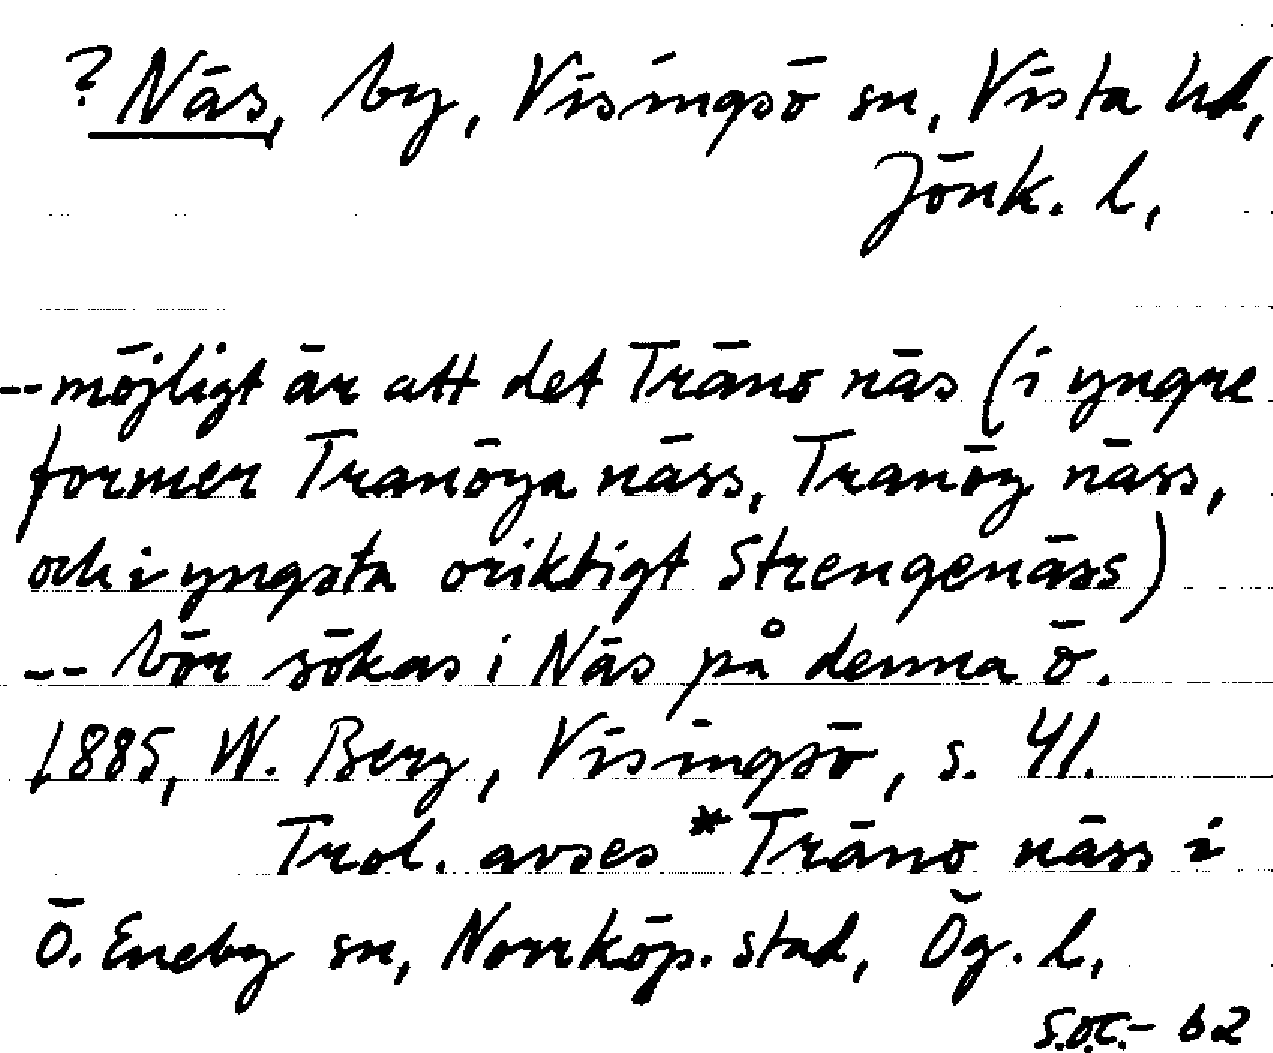 ? Näs, by, Visingsö sn, Vista hd,
Jönk. l,
-- möjligt är att det Träno näs (i yngre
former Tranöya näss, Tranöy näss,
och i yngsta oriktigt Strengenäss)
-- bör sökas i Näs på denna ö.
1885, W. Berg, Visingsö, s. 41.
Trol. avses *Träno näss i
Ö. Eneby sn, Norrköp. stad, Ög. l,
S.O.C.- 62